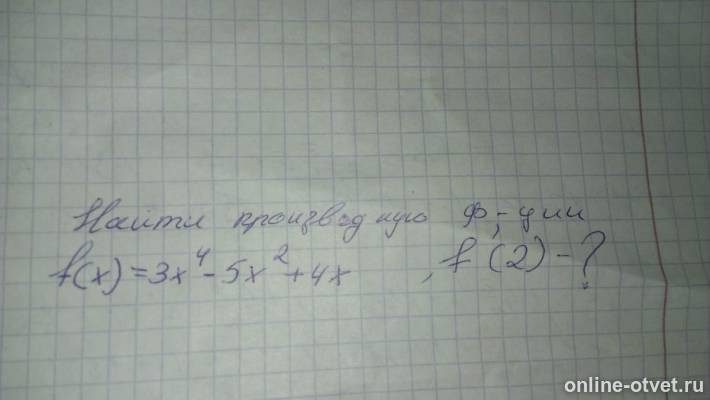 Найти производную ф-ции
f(x)=3x⁴-5x²+4x , f'(2)-?
online-otvet.ru